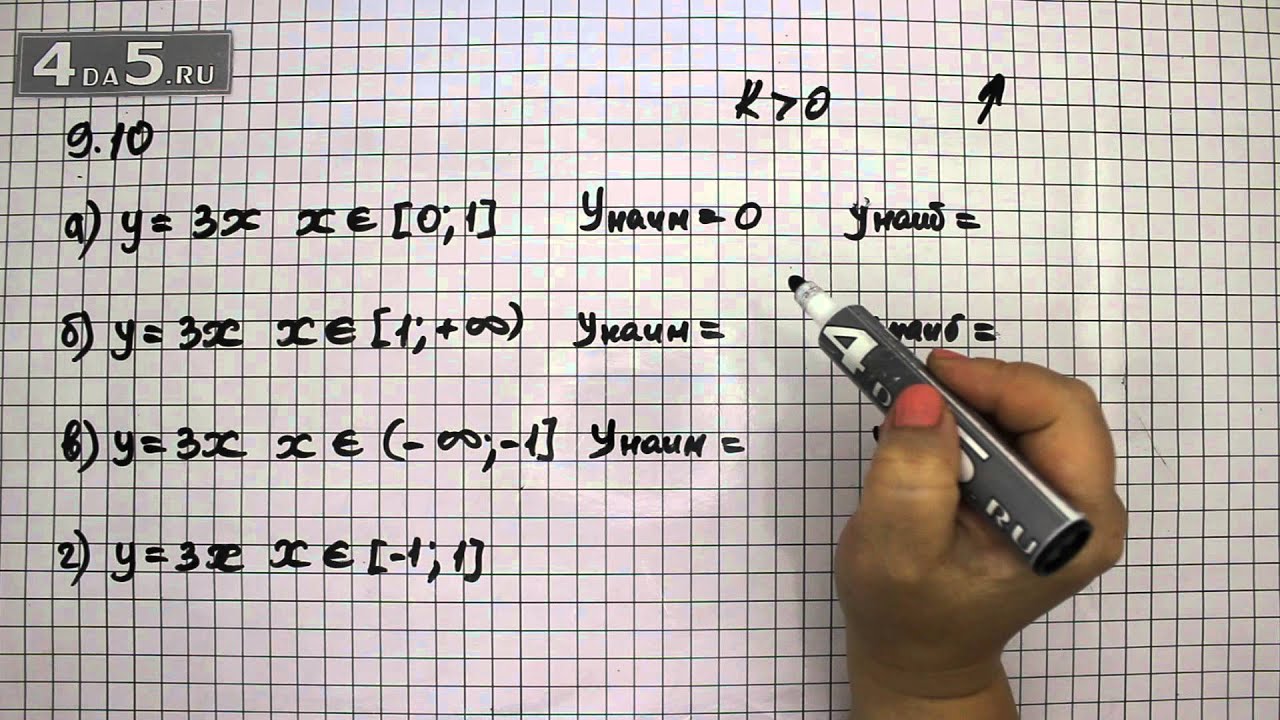 4DA5.RU
K > 0 ↑
9.10
а) y = 3x x ∈ [0; 1] Yнаим = 0 Yнаиб =
б) y = 3x x ∈ [1; +∞) Yнаим = наиб =
в) y = 3x x ∈ (-∞; -1] Yнаим =
г) y = 3x x ∈ [-1; 1]
4D 5.RU